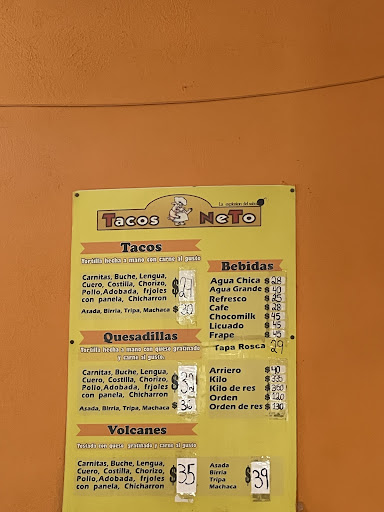 Tacos NeTo
Tacos
Tortilla hecha a mano con carne al gusto
Carnitas, Buche, Lengua,
Cuero, Costilla, Chorizo,
Pollo,Adobada, frjoles
con panela, Chicharron
$27
Asada, Birria, Tripa, Machaca $30
Quesadillas
Tortilla hecha a mano con queso gratinado
y carne al gusto.
Carnitas, Buche, Lengua,
Cuero, Costilla, Chorizo,
Pollo,Adobada, frjoles
con panela, Chicharron
$32
Asada, Birria, Tripa, Machaca $36
Volcanes
Tostada con queso gratinado y carne al gusto
Carnitas, Buche, Lengua,
Cuero, Costilla, Chorizo,
Pollo,Adobada, frjoles
con panela, Chicharron
$35
Bebidas
Agua Chica $28
Agua Grande $
Refresco $25
Cafe $28
Chocomilk $45
Licuado $45
Frape $45
Tapa Rosca 29
Arriero $40
Kilo $
Kilo de res $
Orden $120
Orden de res $130
Asada
Birria
Tripa
Machaca
$39